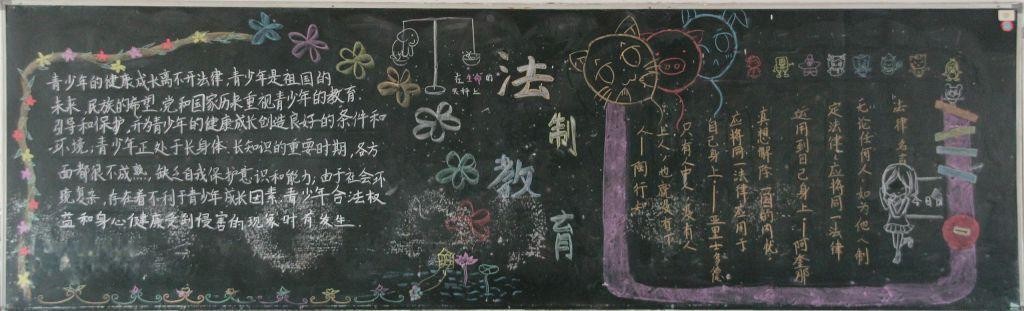 青少年的健康成长离不开法律,青少年是祖国的
未来、民族的希望,党和国家历来重视青少年的教育、
引导和保护,并为青少年的健康成长创造良好的条件和
环境,青少年正处于长身体、长知识的重要时期,各方
面都很不成熟,缺乏自我保护意识和能力,由于社会环
境复杂,存在着不利于青少年成长因素,青少年合法权
益和身心健康受到侵害的现象时有发生
在生命的
天秤上
法制教育
法律名言
无论任何人,如为他人制
定法律,应将同一法律
应用到自己身上——阿奎那
真想解除一国的内忧
应将同一法律应用于
自己身上——亚里士多德
只有人
人——陶行知